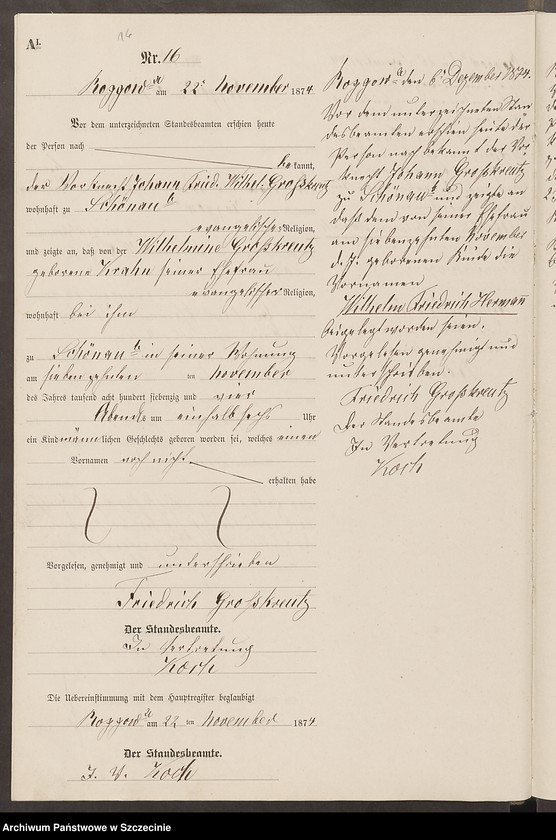 16
A1.
Nr. 16
Roggow A am 22 ten November 1874
Vor dem unterzeichneten Standesbeamten erschien heute
der Person nach
bekannt,
der Vorknecht Johann Fried. Wilhel. Großkreutz
wohnhaft zu Schönau b
evangelischer Religion,
und zeigte an, daß von der Wilhelmine Großkreutz
geborene Krahn seiner Ehefrau
evangelischer Religion,
wohnhaft bei ihm
zu Schönau b in seiner Wohnung
am siebenzehnten ten November
des Jahres tausend acht hundert siebenzig und vier
Abends um einhalb sechs Uhr
ein Kind männlichen Geschlechts geboren worden sei, welches einen
Vornamen noch nicht
erhalten habe
Vorgelesen, genehmigt und unterschrieben
Friedrich Großkreutz
Der Standesbeamte.
In Vertretung
Koch
Die Uebereinstimmung mit dem Hauptregister beglaubigt
Roggow A am 22 ten November 1874
Der Standesbeamte.
I. V. Koch
Roggow A den 6 Dezember 1874.
Vor dem unterzeichneten Stan
desbeamten erschien heute der
Person nach bekannt der Vor
knecht Johann Großkreutz
zu Schönau b und zeigte an
daß dem von seiner Ehefrau
am siebenzehnten November
d. J. geborenen Kinde die
Vornamen
Wilhelm Friedrich Herman
beigelegt worden seien.
Vorgelesen genehmigt und
unterschrieben.
Friedrich Großkreutz
Der Standesbeamte
In Vertretung
Koch
Archiwum Państwowe w Szczecinie